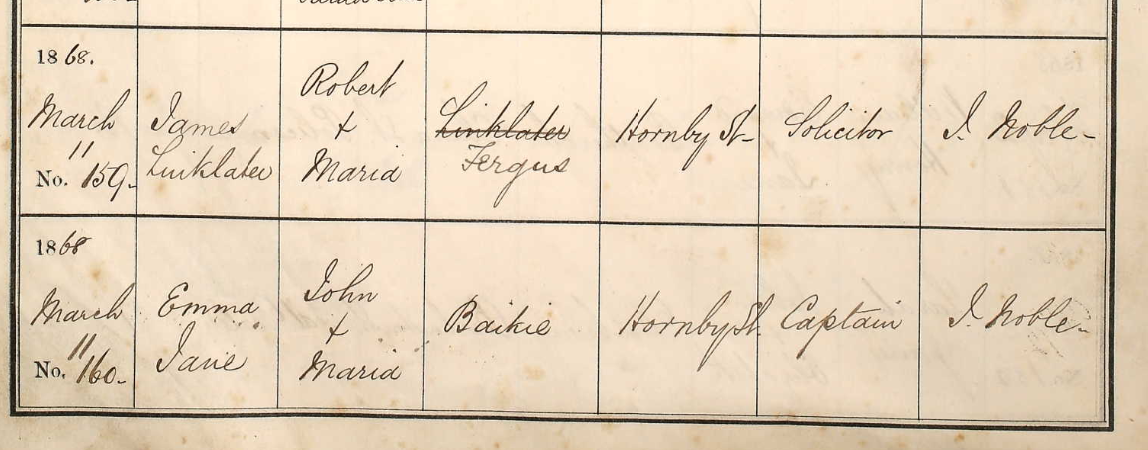 1868.
March
11
No. 159.
James
Linklater
Robert
+
Maria
Linklater
Fergus
Hornby St.
Solicitor
J. Noble.
1868
March
11
No. 160.
Emma
Jane
John
+
Maria
Baikie
Hornby St.
Captain
J. Noble.